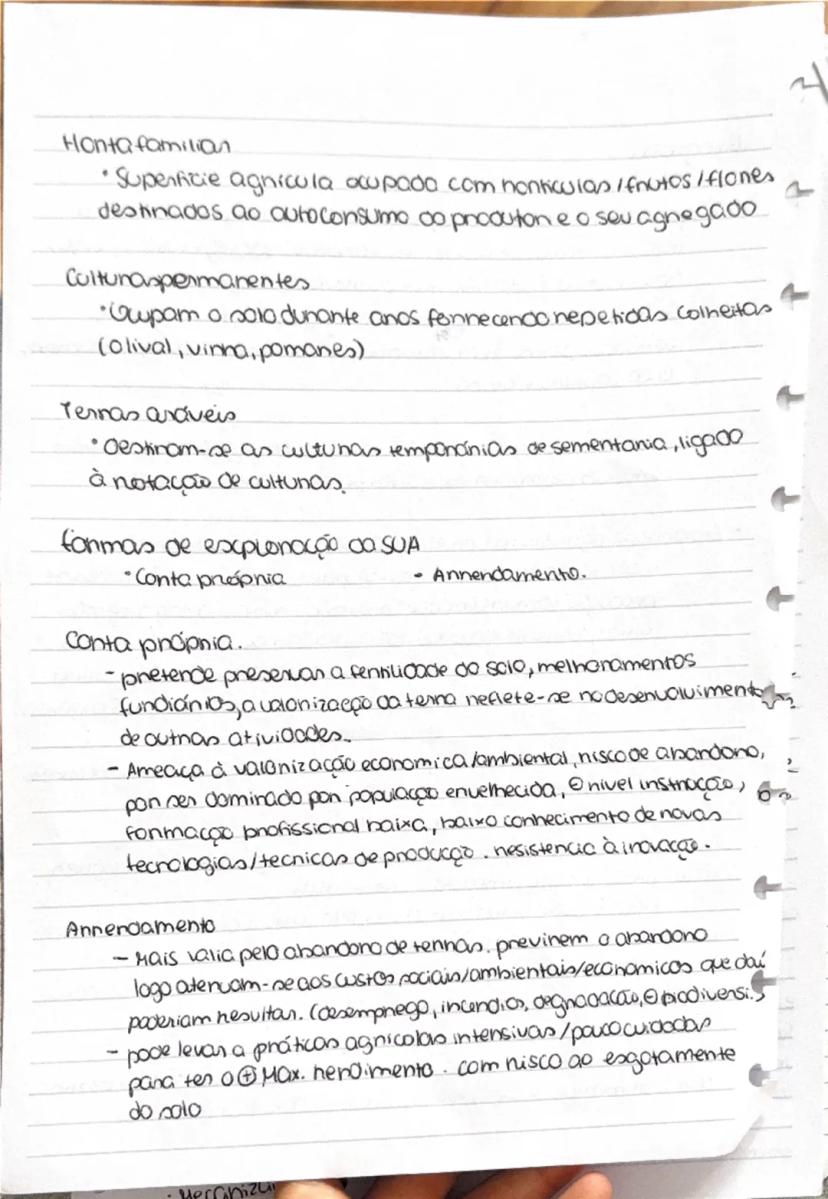 Horta familiar
• Superficie agricula ocupada com horticulas/frutos/flores
destinados ao autoconsumo do produtor e o seu agregado
Culturas permanentes
• Ocupam o solo durante anos fornecendo repetidas colheitas
(olival, vinha, pomares)
Terras aráveis
• Destinam-se as culturas temporárias de sementaria, ligado
à rotação de culturas.
formas de exploração da SUA
• Conta própria • Arrendamento.
Conta própria.
- pretende preservar a fertilidade do solo, melhoramentos
fundiários, a valorização da terra reflete-se no desenvolvimento
de outras atividades.
- Ameaça à valorização economica/ambiental, risco de abandono,
por ser dominado por população envelhecida, ⊖ nivel instrução,
formação profissional baixa, baixo conhecimento de novas
tecnologias/tecnicas de produção. resistencia à inovação.
Arrendamento
- Mais valia pelo abandono de terras. previnem o abandono
logo atenuam-se aos custos sociais/ambientais/economicos que daí
poderiam resultar. (desemprego, incendios, degradação, ⊖ biodiversi.)
- pode levar a práticas agricolas intensivas/pouco cuidadas
para ter o ⊕ Max. rendimento. com risco ao esgotamente
do solo